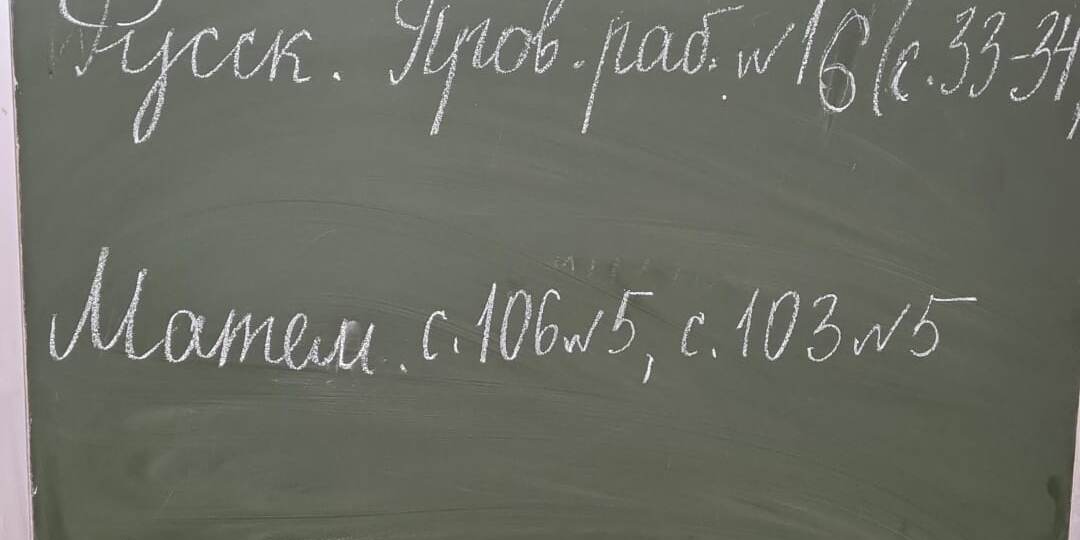 Русск. Пров. раб. №16 (с. 33-34)
Матем. с. 106 №5, с. 103 №5